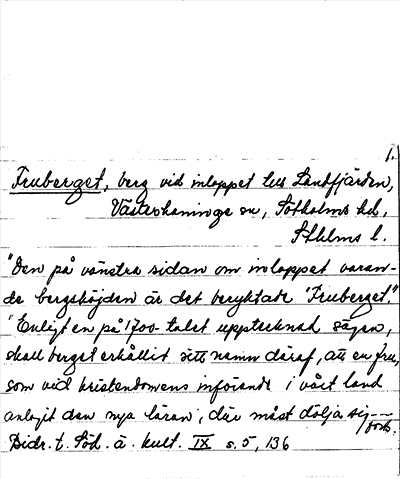 1.
Fruberget, berg vid inloppet till Landfjärden,
Västerhaninge sn, Sotholms hd,
Sthlms l.
"Den på vänstra sidan om inloppet varan-
de bergshöjden är det beryktade "Fruberget."
"Enligt en på 1700-talet upptecknad sägen,
skall berget erhållit sitt namn däraf, att en fru,
som vid kristendomens införande i vårt land
antagit den nya läran, där måst dölja sig--
/forts.
Bidr. t. Söd. ä. kult. IX s. 5, 136